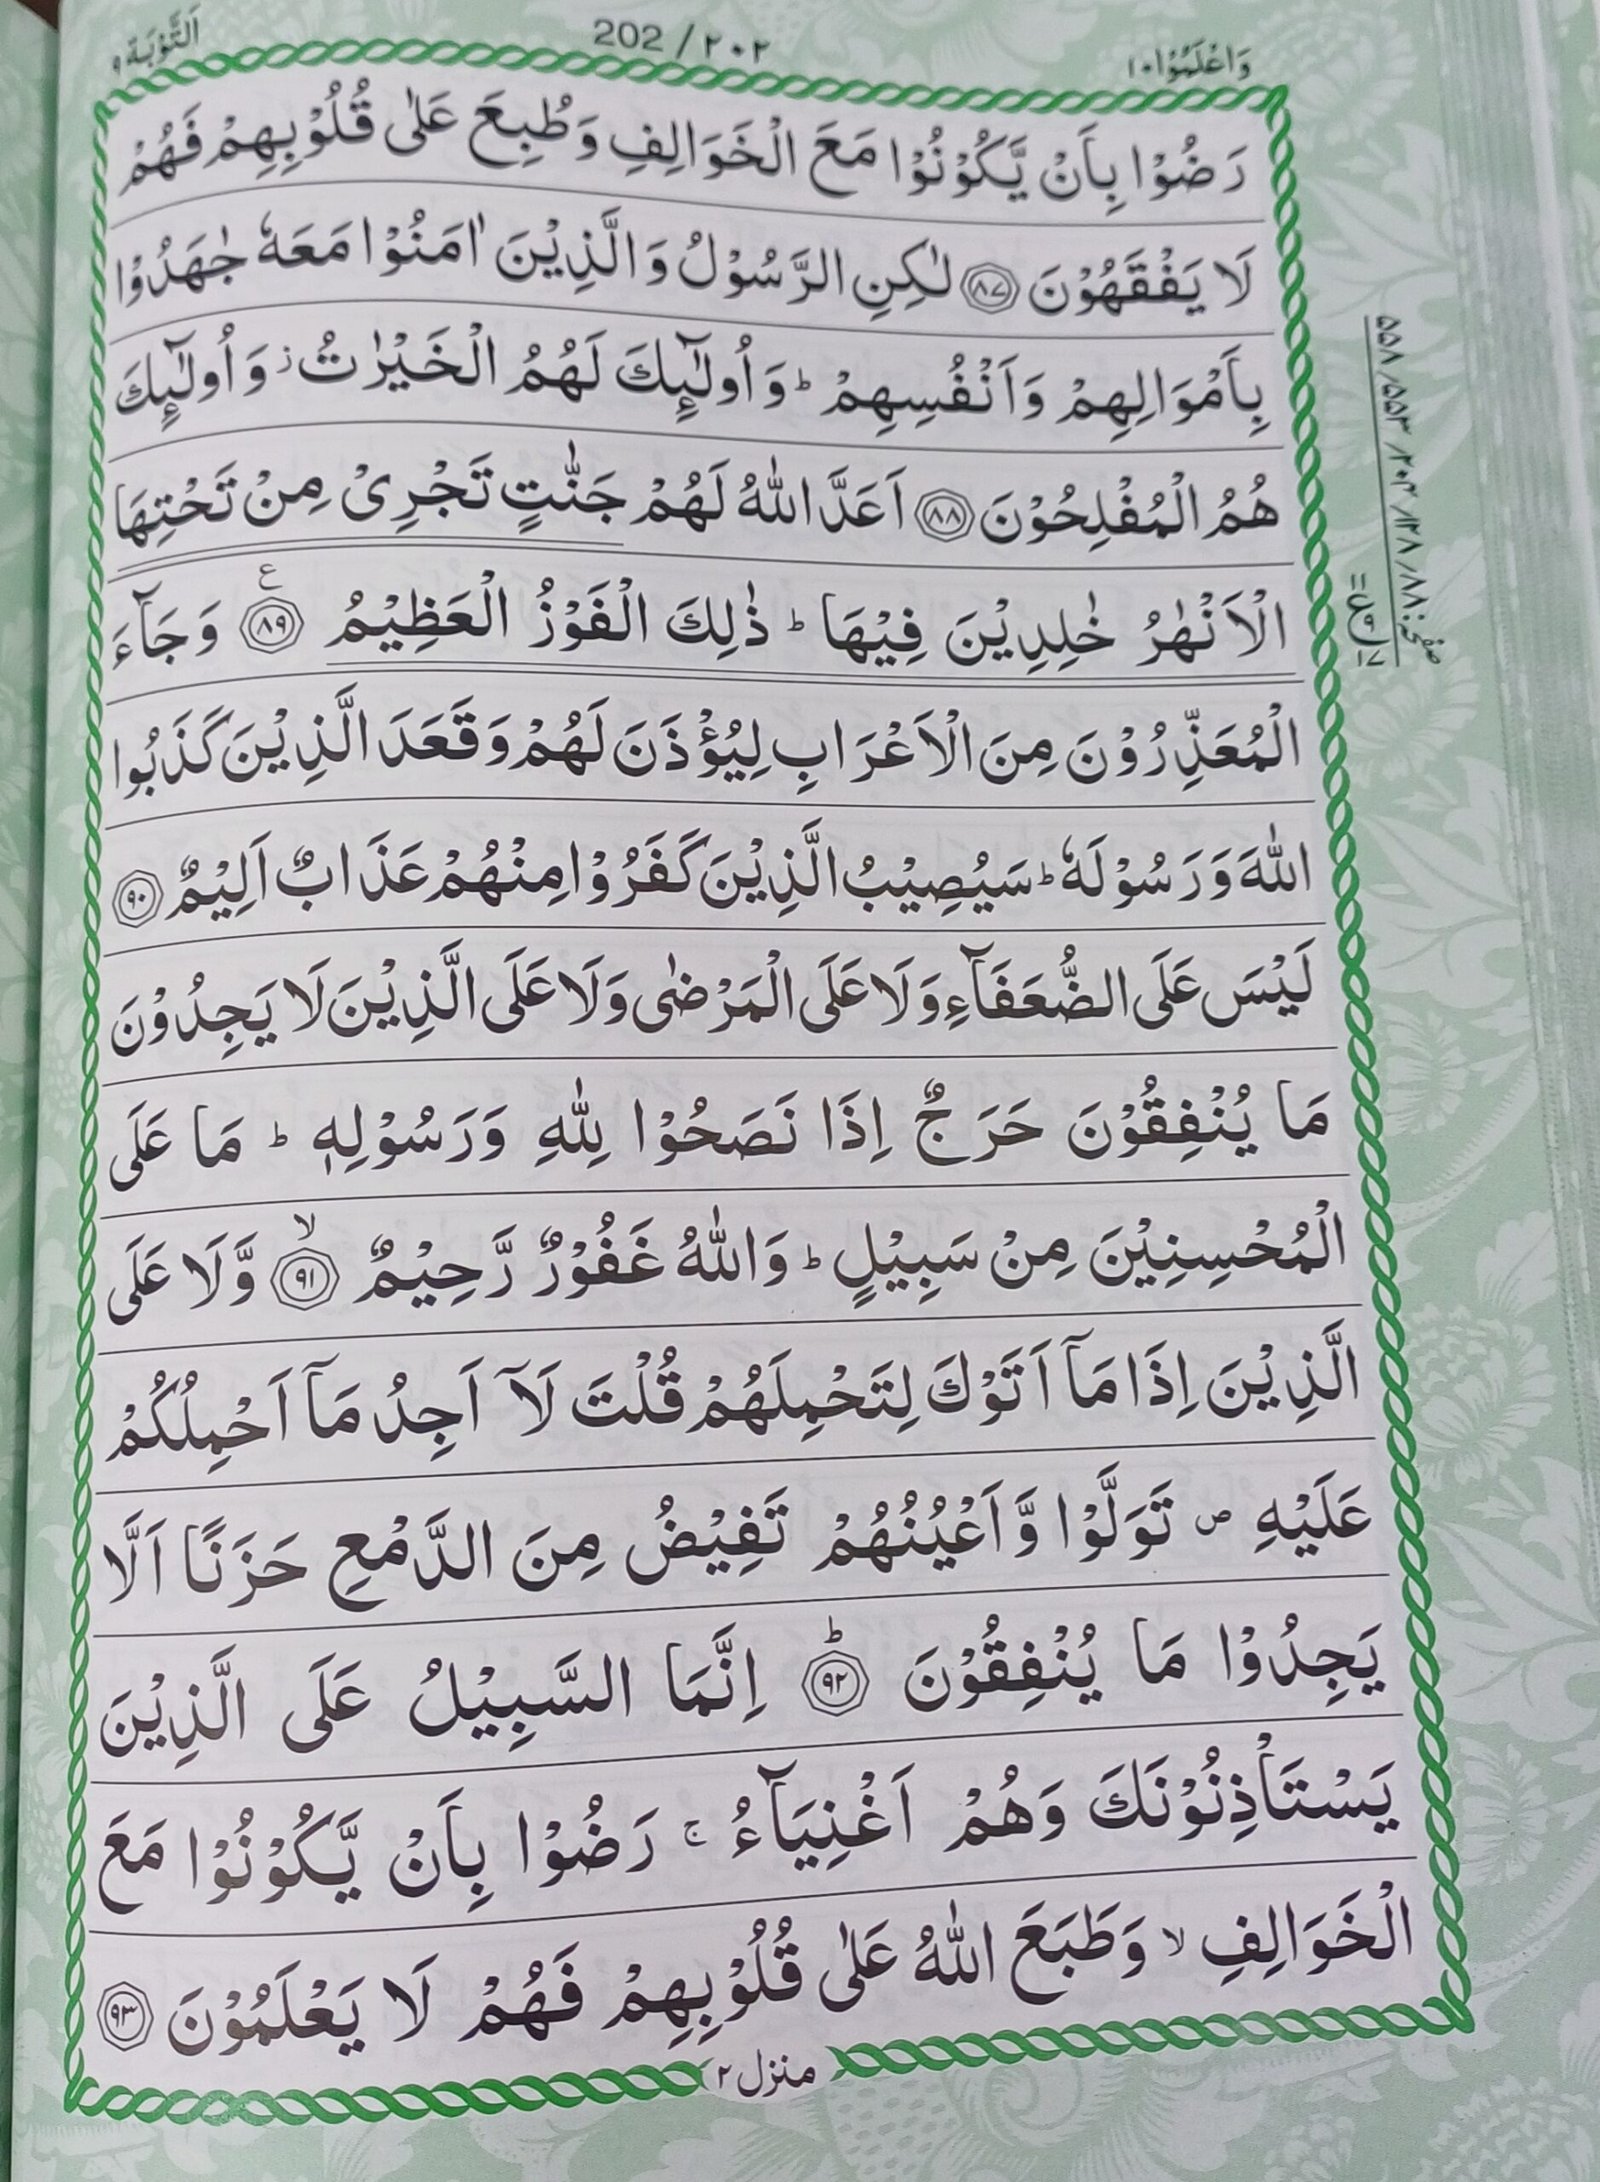 وَاعْلَمُوْا ١٠
202 / ٢٠٢
اَلتَّوْبَة ٩
رَضُوْا بِاَنْ يَّكُوْنُوْا مَعَ الْخَوَالِفِ وَطُبِعَ عَلٰى قُلُوْبِهِمْ فَهُمْ
لَا يَفْقَهُوْنَ ﴿٨٧﴾ لٰكِنِ الرَّسُوْلُ وَالَّذِيْنَ اٰمَنُوْا مَعَهٗ جٰهَدُوْا
بِاَمْوَالِهِمْ وَاَنْفُسِهِمْ ؕ وَاُولٰٓئِكَ لَهُمُ الْخَيْرٰتُ ز وَاُولٰٓئِكَ
هُمُ الْمُفْلِحُوْنَ ﴿٨٨﴾ اَعَدَّ اللّٰهُ لَهُمْ جَنّٰتٍ تَجْرِىْ مِنْ تَحْتِهَا
الْاَنْهٰرُ خٰلِدِيْنَ فِيْهَا ؕ ذٰلِكَ الْفَوْزُ الْعَظِيْمُ ﴿٨٩﴾ ع وَجَآءَ
الْمُعَذِّرُوْنَ مِنَ الْاَعْرَابِ لِيُؤْذَنَ لَهُمْ وَقَعَدَ الَّذِيْنَ كَذَبُوا
اللّٰهَ وَرَسُوْلَهٗ ؕ سَيُصِيْبُ الَّذِيْنَ كَفَرُوْا مِنْهُمْ عَذَابٌ اَلِيْمٌ ﴿٩٠﴾
لَيْسَ عَلَى الضُّعَفَآءِ وَلَا عَلَى الْمَرْضٰى وَلَا عَلَى الَّذِيْنَ لَا يَجِدُوْنَ
مَا يُنْفِقُوْنَ حَرَجٌ اِذَا نَصَحُوْا لِلّٰهِ وَرَسُوْلِهٖ ؕ مَا عَلَى
الْمُحْسِنِيْنَ مِنْ سَبِيْلٍ ؕ وَاللّٰهُ غَفُوْرٌ رَّحِيْمٌ ﴿٩١﴾ ۙ وَّلَا عَلَى
الَّذِيْنَ اِذَا مَاۤ اَتَوْكَ لِتَحْمِلَهُمْ قُلْتَ لَاۤ اَجِدُ مَاۤ اَحْمِلُكُمْ
عَلَيْهِ ص تَوَلَّوْا وَّاَعْيُنُهُمْ تَفِيْضُ مِنَ الدَّمْعِ حَزَنًا اَلَّا
يَجِدُوْا مَا يُنْفِقُوْنَ ﴿٩٢﴾ ؕ اِنَّمَا السَّبِيْلُ عَلَى الَّذِيْنَ
يَسْتَاْذِنُوْنَكَ وَهُمْ اَغْنِيَآءُ ۚ رَضُوْا بِاَنْ يَّكُوْنُوْا مَعَ
الْخَوَالِفِ ۙ وَطَبَعَ اللّٰهُ عَلٰى قُلُوْبِهِمْ فَهُمْ لَا يَعْلَمُوْنَ ﴿٩٣﴾
منزل ٢